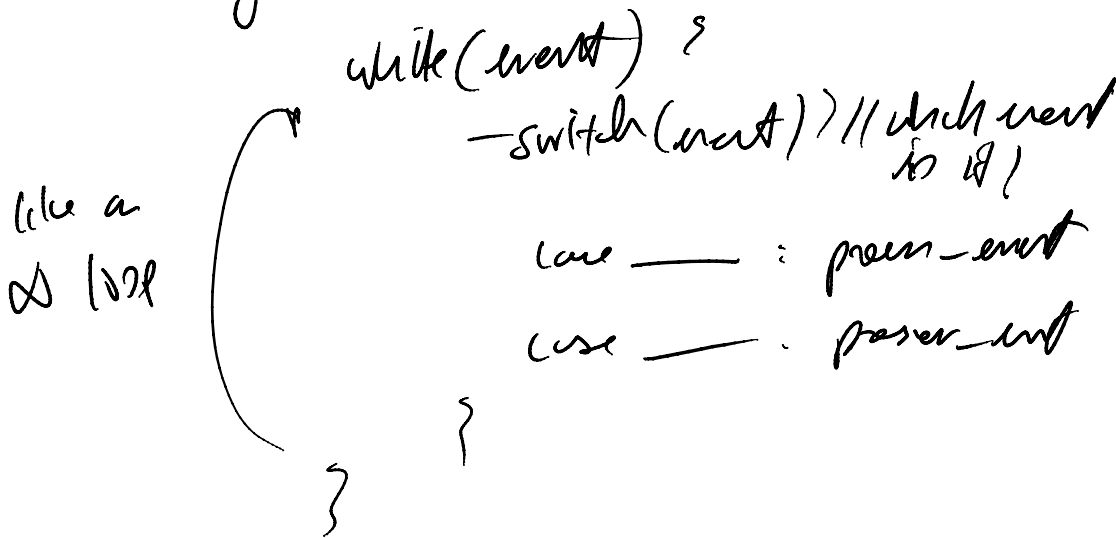 while(event) {
switch(event) { // which event
is it?
like a
∞ loop
case ____ : process_event
case ____ : process_event
}
}